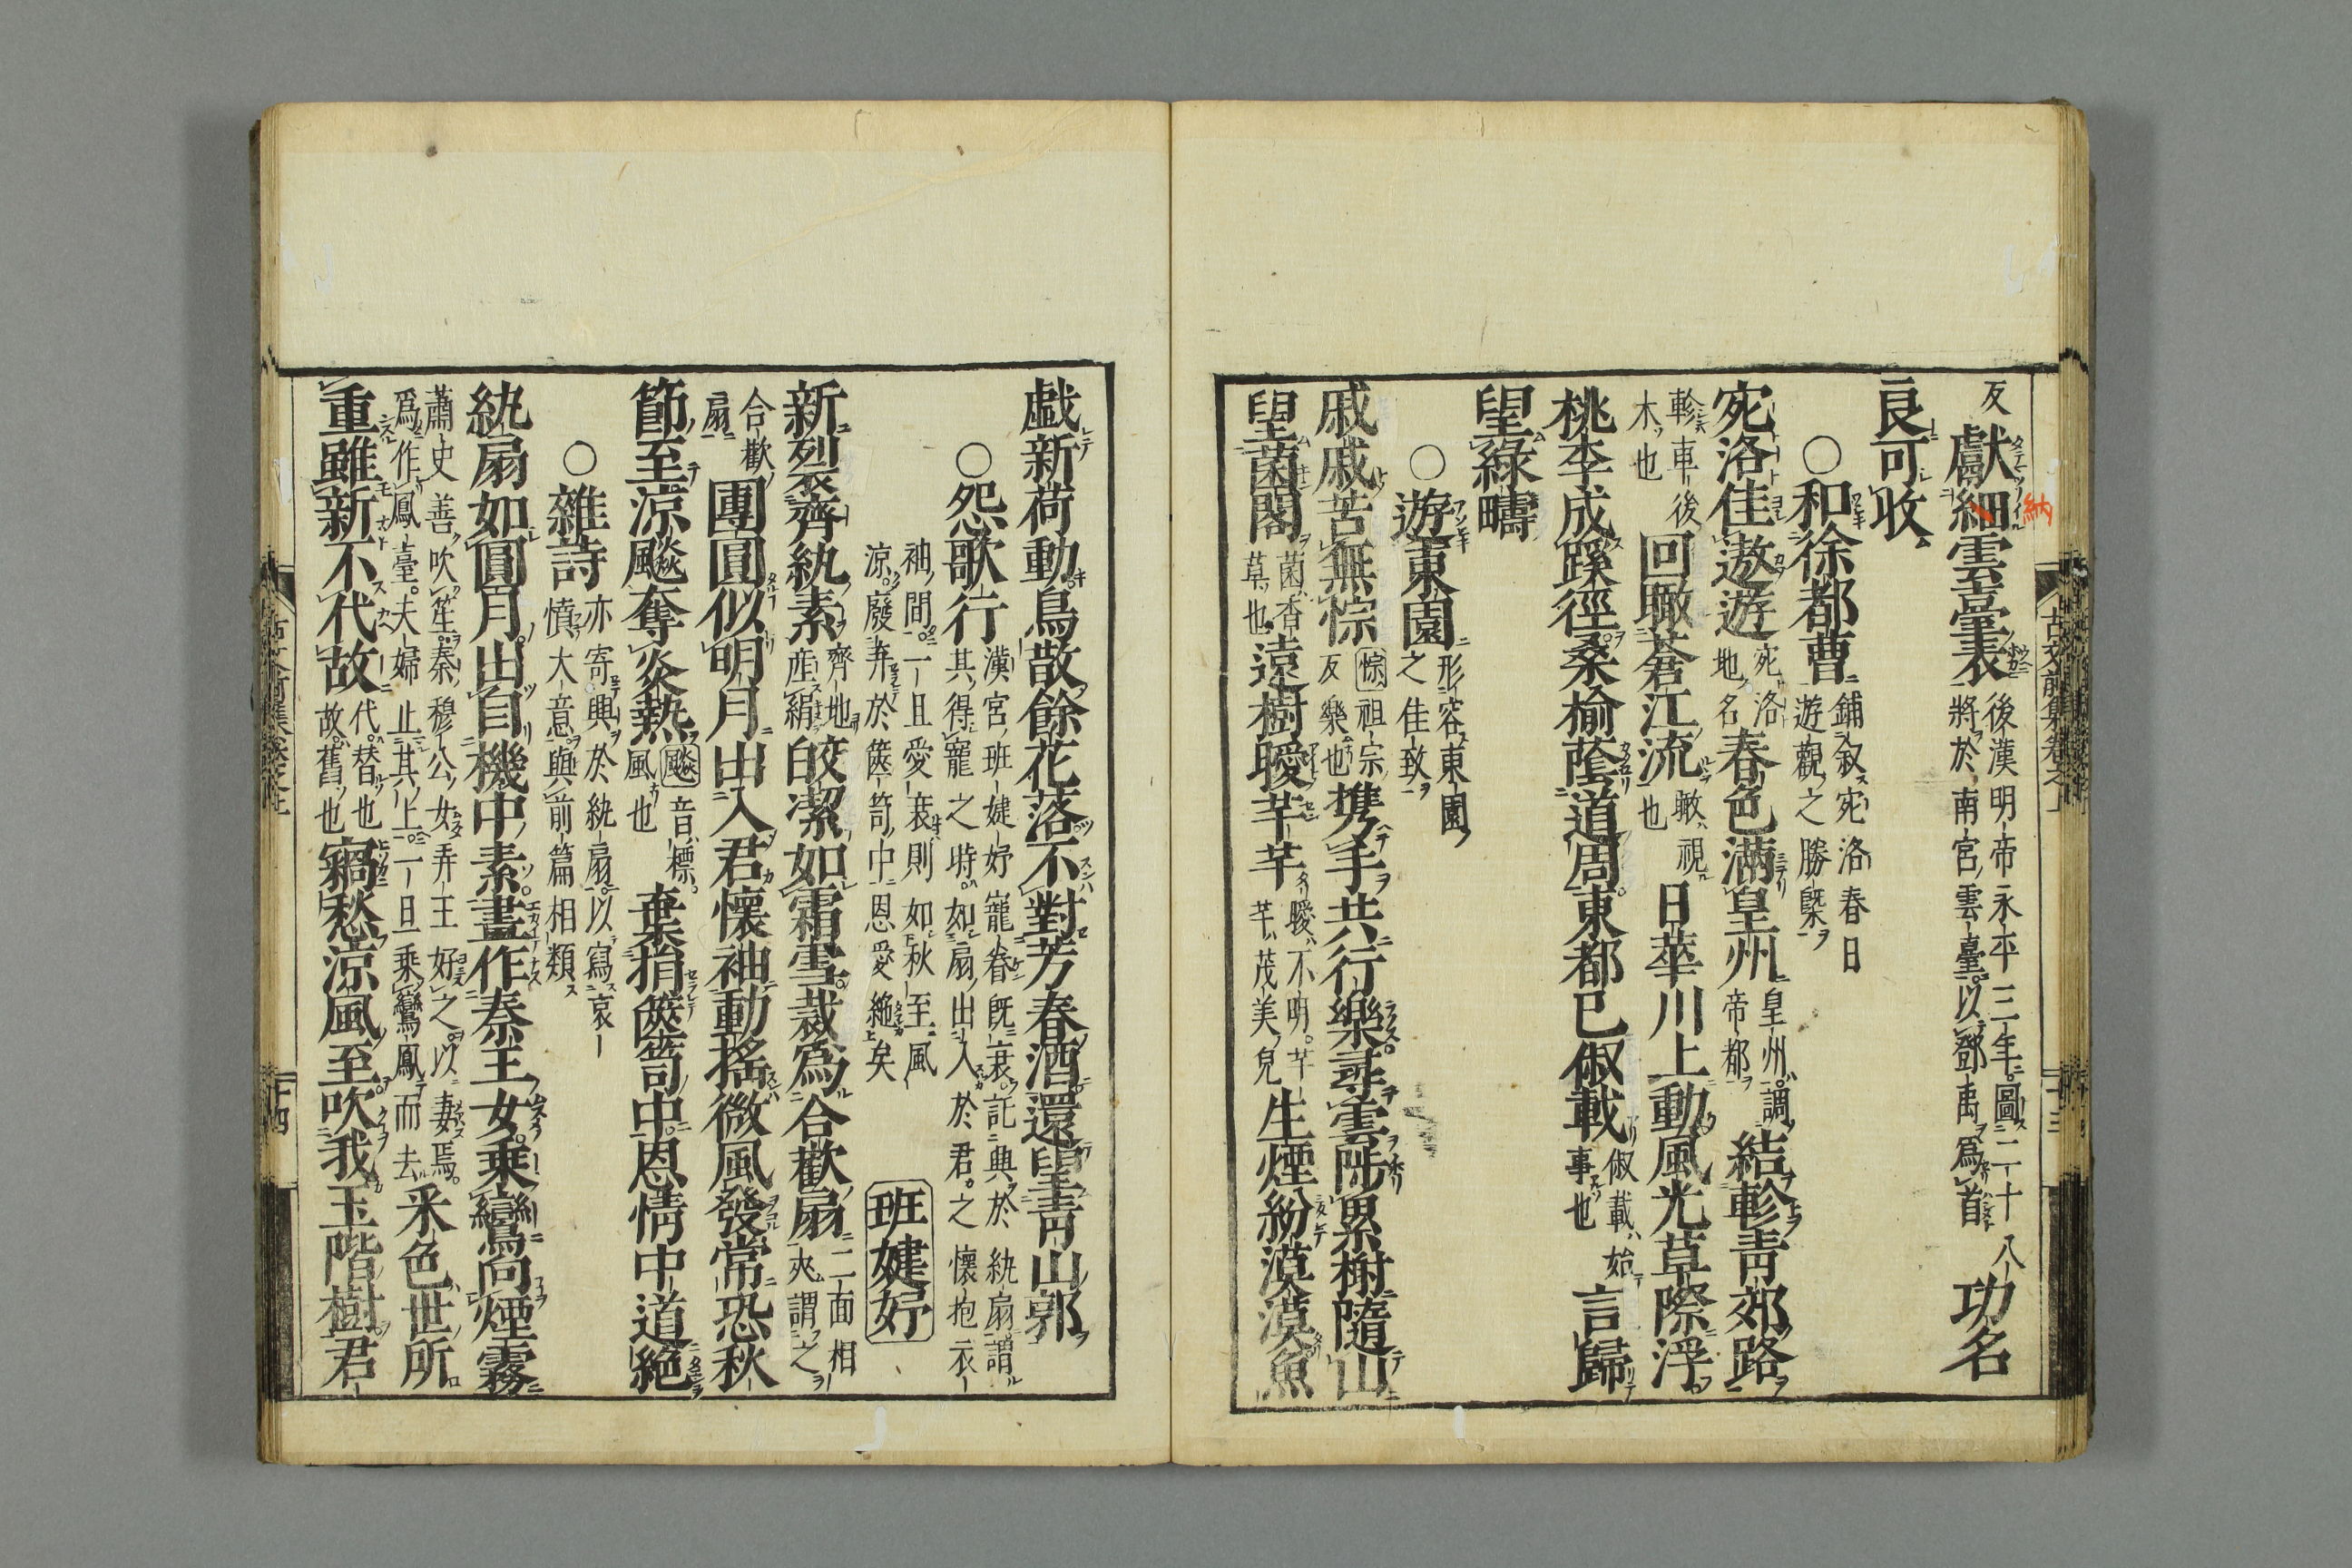 反獻細雲臺表後漢明帝永平三年圖二十八將於南宮雲臺以鄧禹爲首功名
納
良可收
○和徐都曹鋪叙宛洛春日遊觀之勝槩
宛洛佳遨遊宛洛地名春色滿皇州皇州謂帝都結軫青郊路
軫車後木也回瞰蒼江流瞰視也日華川上動風光草際浮
桃李成蹊徑桑榆蔭道周東都已俶載俶載始事也言歸
望綠疇
○遊東園形容東園之佳致
戚戚苦無悰悰祖宗反樂也携手共行樂尋雲陟累榭隨山
望菌閣菌香草也遠樹曖芊芊曖不明芊芊茂美皃生煙紛漠漠魚
戯新荷動鳥散餘花落不對芳春酒還望青山郭
○怨歌行漢宮班婕妤寵眷既衰託興於紈扇謂其得寵之時如扇出入於君之懷抱衣
袖間一旦愛衰則如秋至風涼廢弃於篋笥中恩愛絶矣班婕妤
新裂齊紈素齊地産絹皎潔如霜雪裁爲合歡扇二面相夾謂之
合歡扇團圓似明月出入君懷袖動搖微風發常恐秋
節至涼飈奪炎熱飈音標風也棄捐篋笥中恩情中道絶
○雜詩亦寄興於紈扇以寫哀憤大意與前篇相類
紈扇如圓月出自機中素畫作秦王女乘鸞向煙霧
蕭史善吹笙秦穆公女弄玉好之以妻焉爲作鳳臺夫婦止其上一旦乘鸞鳳而去采色世所
重雖新不代故代替也故舊也竊愁涼風至吹我玉階樹君
古文前集卷之上
十三
十四